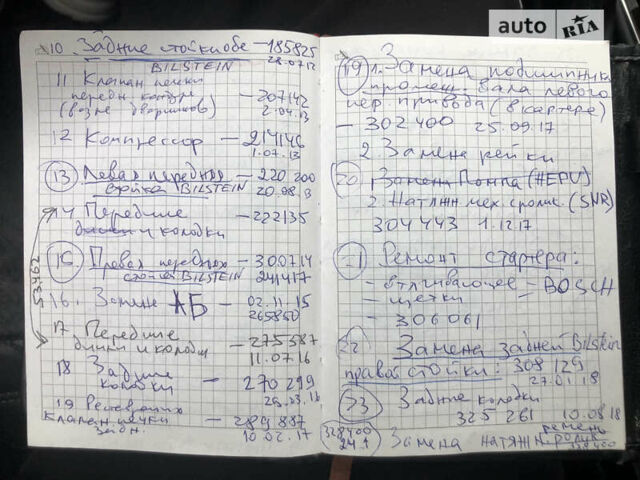 auto RIA
10 Задние стойки обе - 185825
BILSTEIN 28.07.12
11 Клапан печки
передн. контур - 207142
(возле дворников) 2.04.13
12 Компрессор - 214146
1.07.13
13 Левая передняя - 220 200
стойка BILSTEIN 20.08.13
14 Передние - 222135
диски и колодки
15 Правая передняя - 30.07.14
стойка BILSTEIN 241417
53462
16. Замена АБ - 02.11.15
265850
17. Передние - 275587
диски и колодки 11.07.16
18 Задние
колодки - 270 299
19
клапан печки - 289 887
10.02.17
19 1. Замена подшипника
промеж. вала левого
пер привода (в картере)
- 302 400 25.09.17
2. Замена рейки
20 1. Замена Помпа (HEPU)
2. Натяжн мех. ролик (SNR)
304 443 1.12.17
21 Ремонт стартера:
- втягивающее - BOSCH
- щетки
- 306 061
22 Замена задней BILSTEIN
правой стойки: 308 129
27.01.18
23 Задние колодки
325 261 10.08.18
328400 ремень
24.1 Замена натяжн. ролик
328400